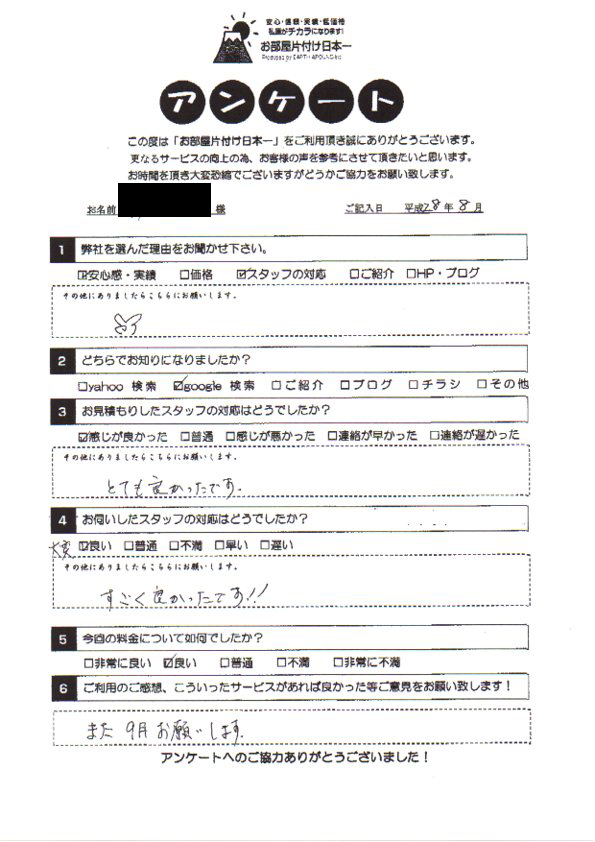 安心・信頼・実績・低価格
私達がチカラになります!
お部屋片付け日本一
アンケート
この度は「お部屋片付け日本一」をご利用頂き誠にありがとうございます。
更なるサービスの向上の為、お客様の声を参考にさせて頂きたいと思います。
お時間を頂き大変恐縮でございますがどうかご協力をお願い致します。
お名前 様 ご記入日 平成28年8月
1 弊社を選んだ理由をお聞かせ下さい。
☑安心感・実績 □価格 ☑スタッフの対応 □ご紹介 □HP・ブログ
その他にありましたらこちらにお願いします。
2 どちらでお知りになりましたか?
□yahoo 検索 ☑google 検索 □ご紹介 □ブログ □チラシ □その他
3 お見積もりしたスタッフの対応はどうでしたか?
☑感じが良かった □普通 □感じが悪かった □連絡が早かった □連絡が遅かった
その他にありましたらこちらにお願いします。
とても良かったです。
4 お伺いしたスタッフの対応はどうでしたか?
大変 ☑良い □普通 □不満 □早い □遅い
その他にありましたらこちらにお願いします。
すごく良かったです!!
5 今回の料金について如何でしたか?
□非常に良い ☑良い □普通 □不満 □非常に不満
6 ご利用のご感想、こういったサービスがあれば良かった等ご意見をお願い致します!
また9月お願いします。
アンケートへのご協力ありがとうございました!